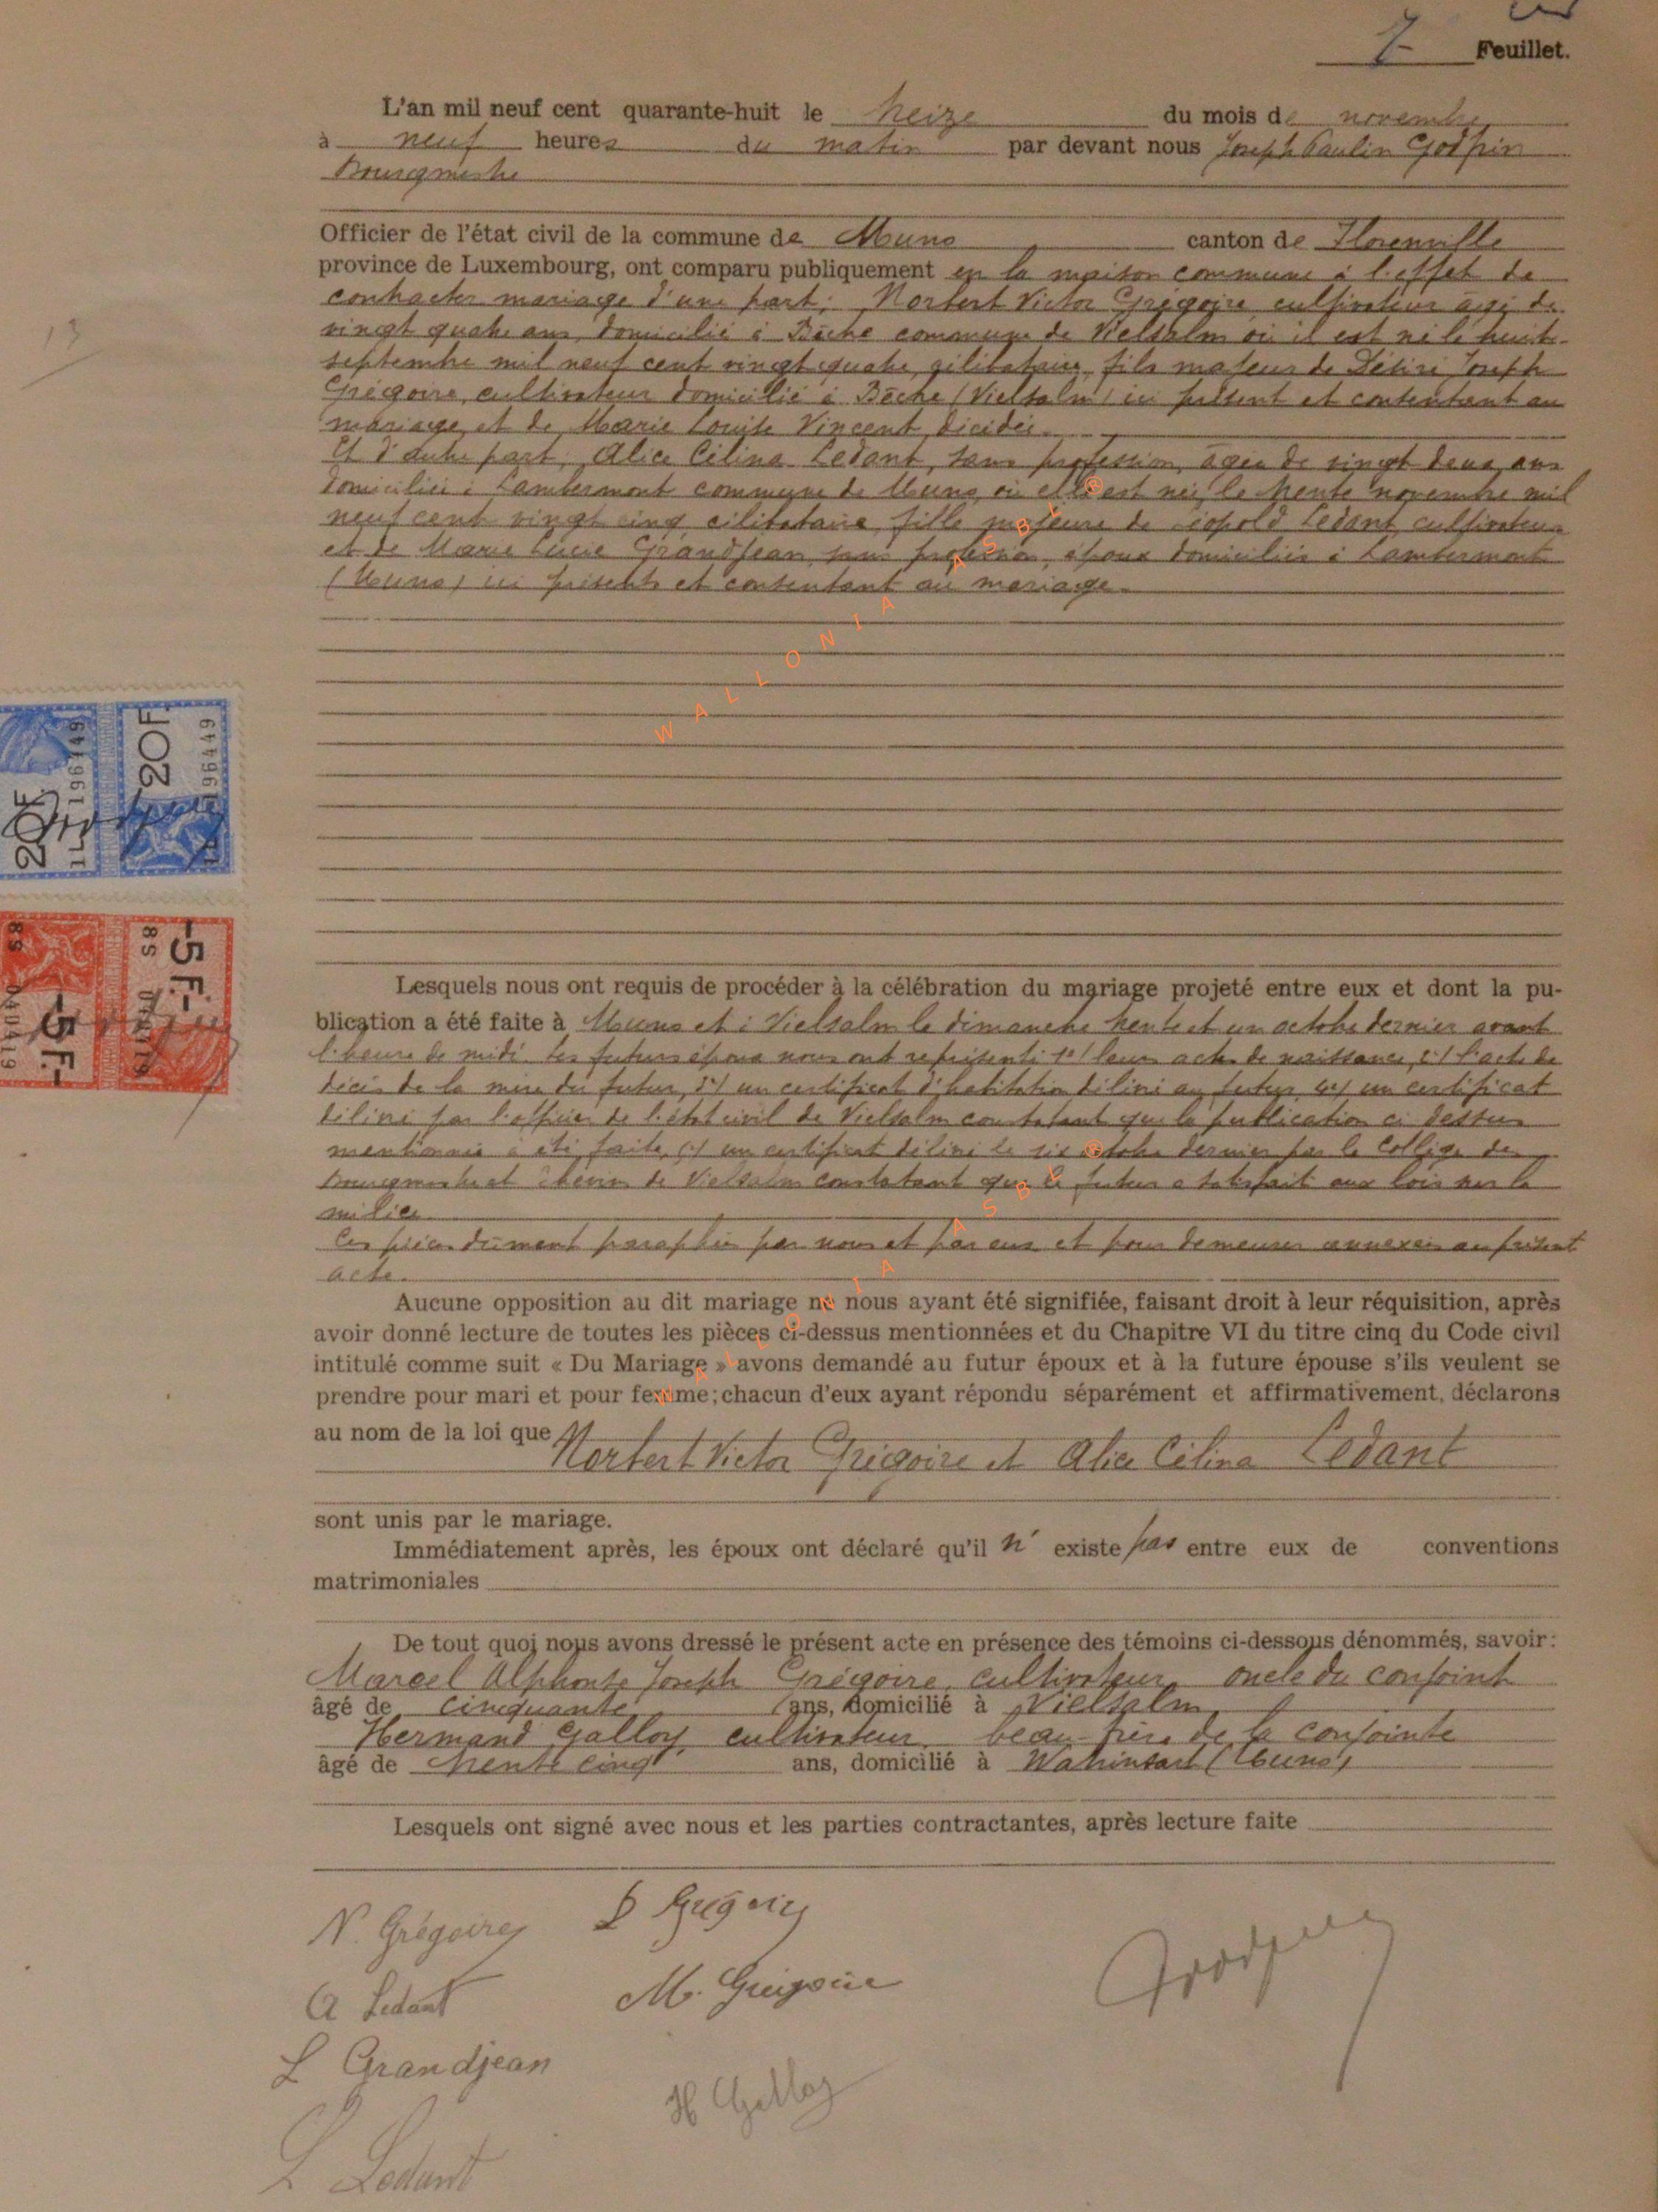 7 Feuillet.
L'an mil neuf cent quarante-huit le treize du mois de novembre
à neuf heures du matin par devant nous Joseph Paulin Godfrin
Bourgmestre
Officier de l'état civil de la commune de Muno canton de Florenville
province de Luxembourg, ont comparu publiquement en la maison commune à l'effet de
contracter mariage d'une part; Norbert Victor Grégoire, cultivateur âgé de
vingt quatre ans, domicilié à Bêche commune de Vielsalm où il est né le huit
septembre mil neuf cent vingt quatre, célibataire, fils majeur de Désiré Joseph
Grégoire, cultivateur domicilié à Bêche (Vielsalm) ici présent et consentant au
mariage, et de Marie Louise Vincent, décédée.
13
Et d'autre part, Alice Célina Ledant, sans profession, âgée de vingt deux ans
domiciliée à Lambermont commune de Muno, où elle est née, le trente novembre mil
neuf cent vingt cinq célibataire, fille majeure de Léopold Ledant, cultivateur
et de Marie Lucie Grandjean, sans profession, époux domiciliés à Lambermont
(Muno) ici présents et consentant au mariage.
WALLONIA ASBL ®
20F. 1L 196449
20F. 196449
5F.- S8 040419
5F.- S8 040419
Lesquels nous ont requis de procéder à la célébration du mariage projeté entre eux et dont la pu-
blication a été faite à Muno et à Vielsalm le dimanche trente et un octobre dernier avant
l'heure de midi. Les futurs époux nous ont représenté 1°/ leurs actes de naissance, 2°/ l'acte de
décès de la mère du futur, 3°/ un certificat d'habitation délivré au futur, 4°/ un certificat
délivré par l'officier de l'état civil de Vielsalm constatant que la publication ci dessus
mentionnée a été faite, 5°/ un certificat délivré le six octobre dernier par le Collège des
Bourgmestre et échevins de Vielsalm constatant que le futur a satisfait aux lois sur la
milice.
Ces pièces dûment paraphées par nous et par eux et pour demeurer annexées au présent
acte.
Aucune opposition au dit mariage ne nous ayant été signifiée, faisant droit à leur réquisition, après
avoir donné lecture de toutes les pièces ci-dessus mentionnées et du Chapitre VI du titre cinq du Code civil
intitulé comme suit « Du Mariage » avons demandé au futur époux et à la future épouse s'ils veulent se
prendre pour mari et pour femme; chacun d'eux ayant répondu séparément et affirmativement, déclarons
au nom de la loi que Norbert Victor Grégoire et Alice Célina Ledant
WALLONIA ASBL ®
sont unis par le mariage.
Immédiatement après, les époux ont déclaré qu'il n' existe pas entre eux de conventions
matrimoniales
De tout quoi nous avons dressé le présent acte en présence des témoins ci-dessous dénommés, savoir:
Marcel Alphonse Joseph Grégoire, cultivateur, oncle du conjoint
âgé de cinquante ans, domicilié à Vielsalm
Hermand Galloy, cultivateur, beau-frère de la conjointe
âgé de trente cinq ans, domicilié à Watrinsart (Muno)
Lesquels ont signé avec nous et les parties contractantes, après lecture faite
N. Grégoire D Grégoire
A Ledant M. Grégoire Godfrin
L Grandjean
H Galloy
L Ledant